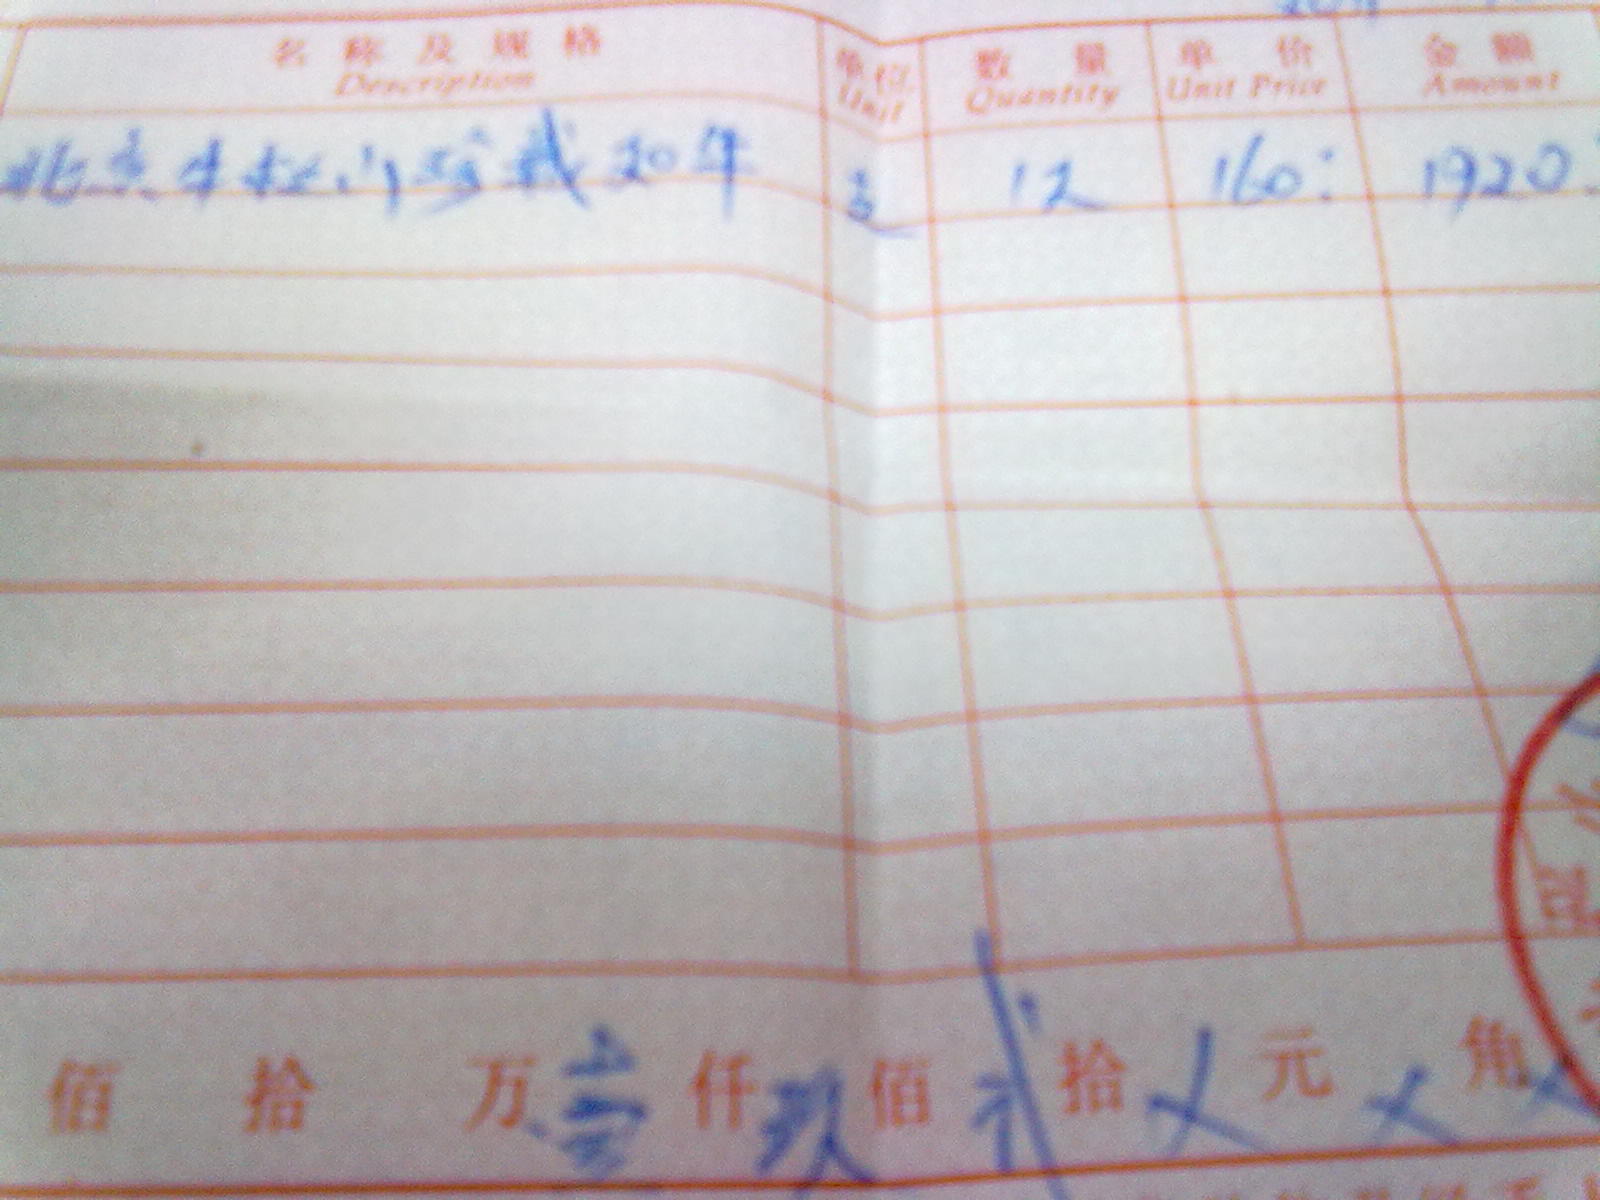 名称及规格 单位 数量 单价 金额
Description Unit Quantity Unit Price Amount
北京牛栏山珍藏20年 12 160: 1920:
佰 拾 万 壹 仟 玖 佰 贰 拾 X 元 X 角 X